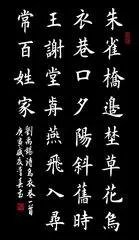 朱雀橋邊埜草花烏
衣巷口夕陽斜舊時
王謝堂歬燕飛入尋
常百姓家
劉禹錫詩烏衣巷一首